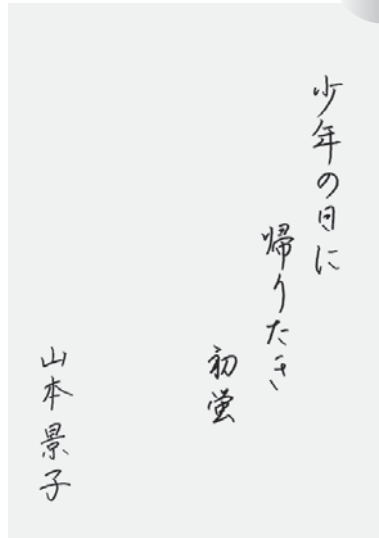 少年の日に
帰りたき
初蛍
山本景子